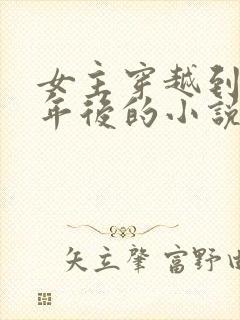 女主穿越到
年後的小說
矢立肇 富野由